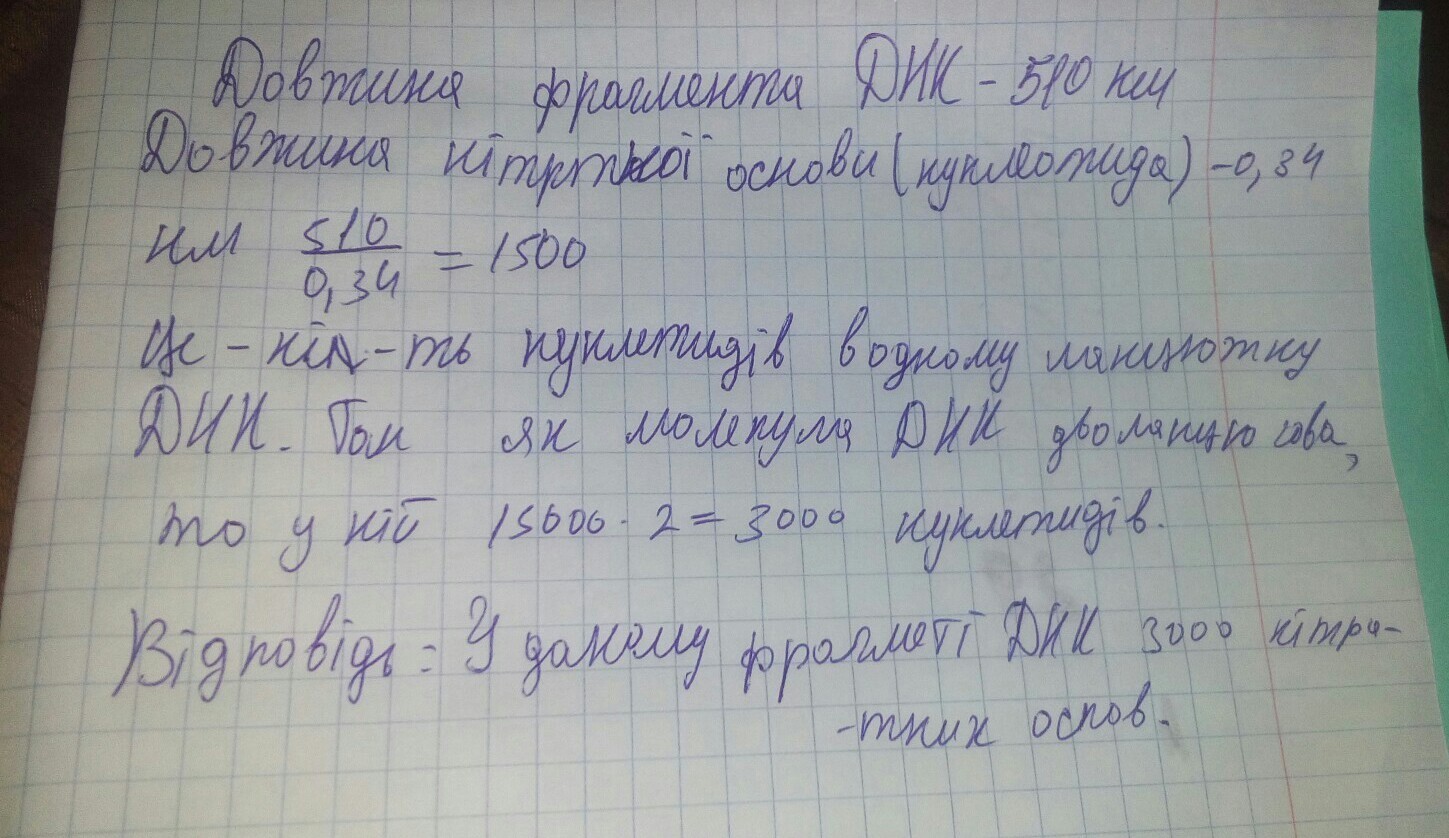 Довжина фрагмента ДНК - 510 нм
Довжина нітртної основи (нуклеотида) - 0,34
нм 510/0,34 = 1500
Це - кіл-ть нуклетидів в одному ланцюжку
ДНК. Так як молекула ДНК дволанцюгова,
то у ній 15000 · 2 = 3000 нуклетидів.
Відповідь: У даному фрагметі ДНК 3000 нітра-
-тних основ.